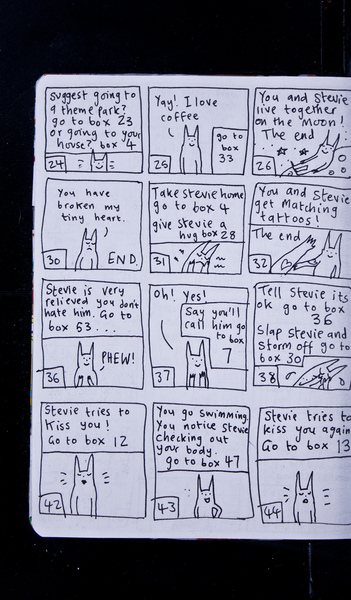 suggest going to
a theme park?
go to box 23
or going to your
house? box 4
24
Yay! I love
coffee
go to
box
33
25
You and Stevie
live together
on the moon!
The end
26
You have
broken my
tiny heart.
30
END.
Take Stevie home
go to box 4
give Stevie a
hug box 28
31
You and Stevie
get Matching
tattoos!
The end
32
Stevie is very
relieved you don't
hate him. Go to
box 63...
PHEW!
36
Oh! Yes!
Say you'll
call him go
to box
7
37
Tell Stevie its
ok go to box
36
Slap Stevie and
Storm off go to
box 30
38
Stevie tries to
Kiss you!
Go to box 12
42
You go swimming.
You notice Stevie
checking out
your body.
go to box 47
43
Stevie tries to
kiss you again
Go to box 13
44